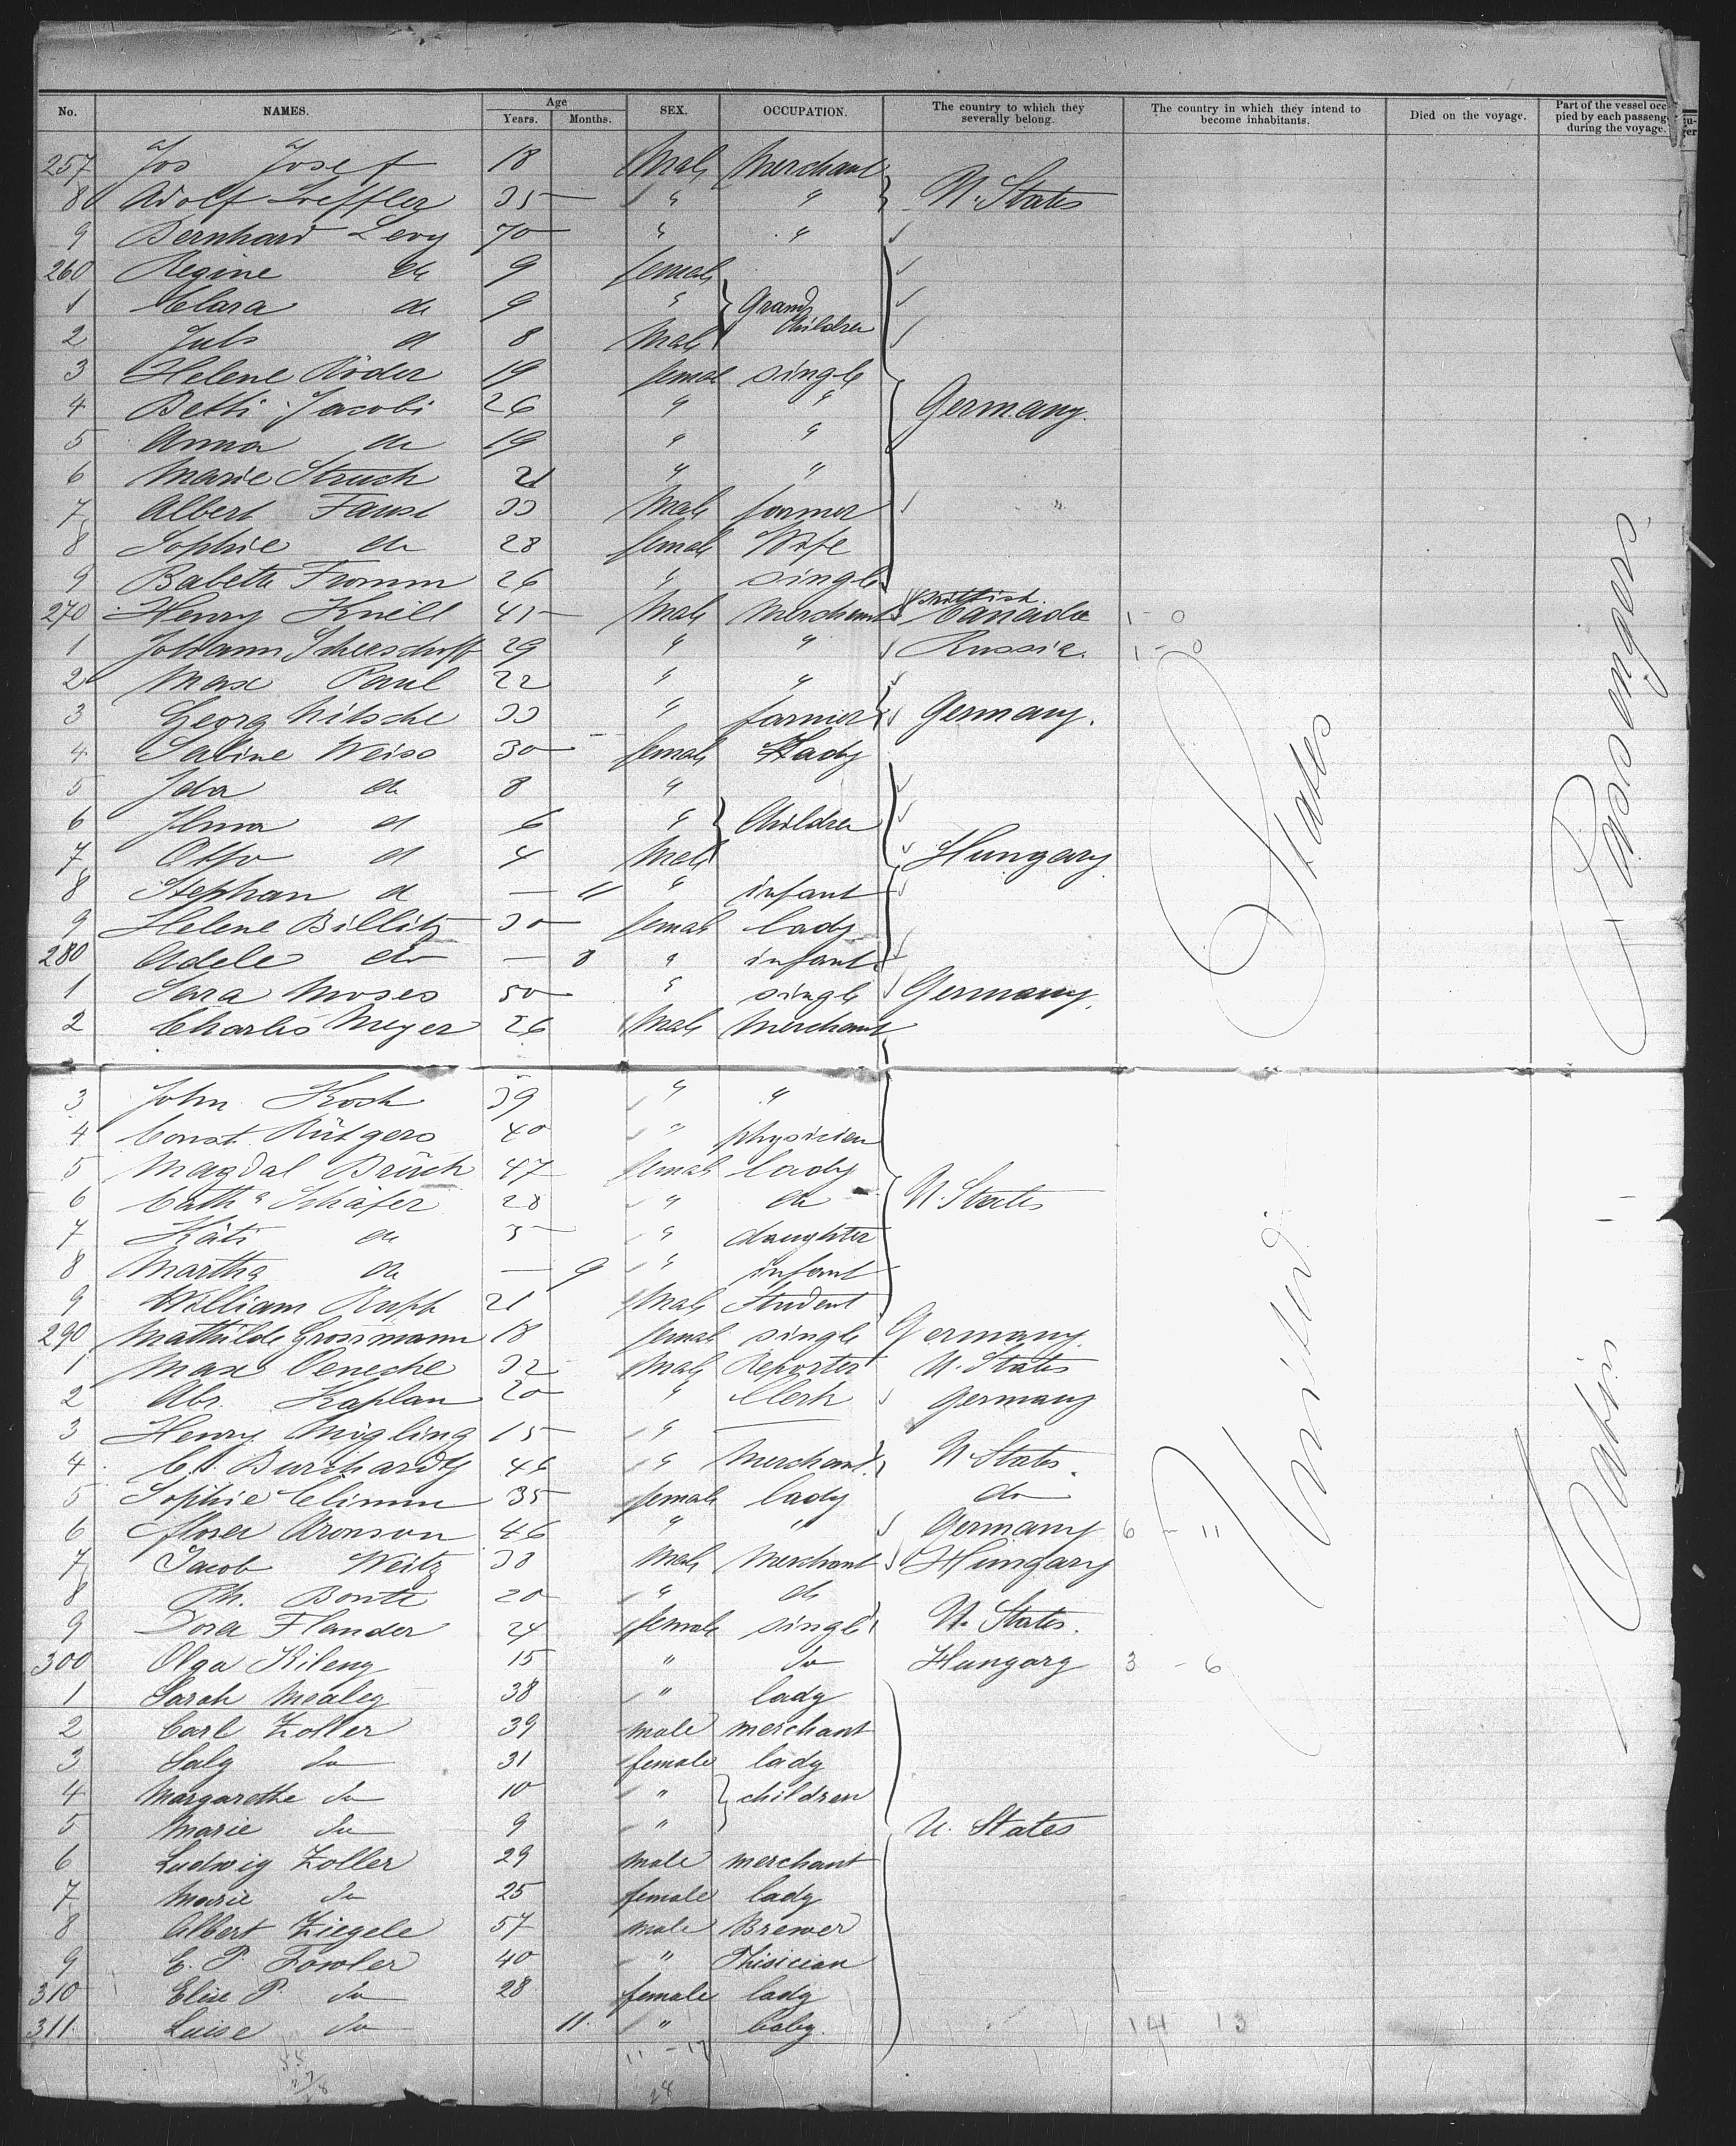 No. NAMES. Age Years. Months. SEX. OCCUPATION. The country to which they severally belong. The country in which they intend to become inhabitants. Died on the voyage. Part of the vessel occupied by each passenger during the voyage.
257 Jos Josef 18 Male Merchant
8 Adolf Loeffler 35 " " U. States
9 Bernhard Levy 70 " "
260 Regine do 9 female
1 Clara do 9 " Grand
2 Juls d 8 Male children
3 Helene Röder 19 female single
4 Betti Jacobi 26 " " Germany.
5 Anna do 19 " "
6 Marie Struch 21 " "
7 Albert Faust 33 Male farmer
8 Sophie do 28 female Wife
9 Babette Fromm 26 " single
270 Henry Knell 45 Male Merchant British Canada 1 - 0
1 Johann 29 " " Russia. 1 - 0
2 Max Paul 22 " "
3 Georg Nitsche 33 " farmer Germany.
4 Sabine Weiss 30 female Lady
5 Ida do 8 "
6 Ilma d 6 " Children
7 Otto d 4 Male Hungary
8 Stephan d — 11 " infant
9 Helene Billitz 30 female lady
280 Adele do — 8 " infant
1 Sara Moses 50 " single Germany.
2 Charles Meyer 26 Male Merchant
3 John Koch 39 " "
4 Const. Rütgers 40 " physician
5 Magdal Brüch 47 female lady
6 Cath a Schäfer 28 " do U. States
7 Käti do 3 " daughter
8 Martha do — 9 " infant
9 William Rupp 21 Male Student
290 Mathilde Grossmann 18 female single Germany
1 Max Oeneche 32 Male Reporter U. States
2 Abr. Kaplan 20 " Clerk Germany
3 Henry Mögling 15 " —
4 C. Burchardt 46 " Merchant U. States.
5 Sophie Climm 35 female lady do
6 Flora Aronson 46 " " Germany 6 - 11
7 Jacob Weitz 38 Male Merchant Hungary
8 Ph. Bontt 20 " do
9 Dora Flander 24 female single U. States.
300 Olga Kileny 15 " do Hungary 3 - 6
1 Sarah Mealey 38 " lady
2 Carl Zoller 39 male merchant
3 Saly do 31 female lady
4 Margarethe do 10 " children
5 Marie do 9 " U. States
6 Ludwig Zoller 29 male merchant
7 Marie do 25 female lady
8 Albert Ziegele 57 male Brewer
9 E. P. Fowler 40 " Phisician
310 Elise P. do 28 female lady
311. Luise do 11. " baby. 14 13
11 - 17
28
United States
Cabin Passengers